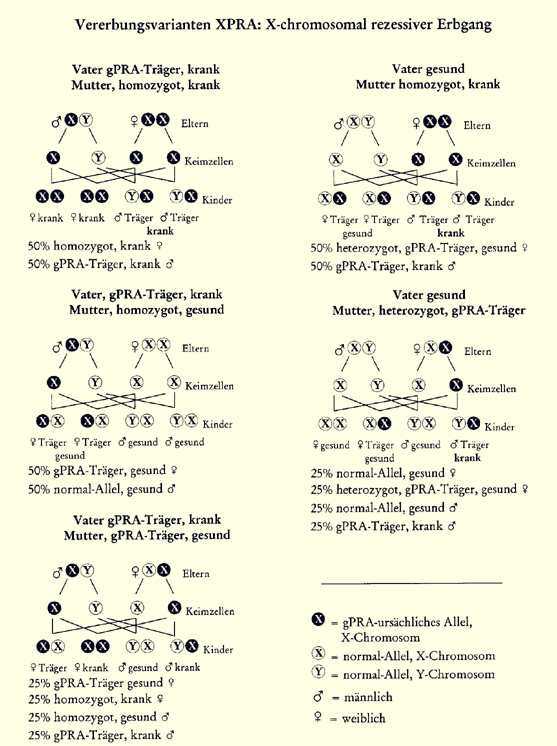 Vererbungsvarianten XPRA: X-chromosomal rezessiver Erbgang
Vater gPRA-Träger, krank
Mutter, homozygot, krank
♂ X Y ♀ X X Eltern
X Y X X Keimzellen
X X X X Y X Y X Kinder
♀ krank ♀ krank ♂ Träger ♂ Träger
krank
50% homozygot, krank ♀
50% gPRA-Träger, krank ♂
Vater, gPRA-Träger, krank
Mutter, homozygot, gesund
♂ X Y ♀ X X Eltern
X Y X X Keimzellen
X X X X Y X Y X Kinder
♀ Träger ♀ Träger ♂ gesund ♂ gesund
gesund
50% gPRA-Träger, gesund ♀
50% normal-Allel, gesund ♂
Vater gPRA-Träger, krank
Mutter, gPRA-Träger, gesund
♂ X Y ♀ X X Eltern
X Y X X Keimzellen
X X X X Y X Y X Kinder
♀ Träger ♀ krank ♂ gesund ♂ krank
25% gPRA-Träger gesund ♀
25% homozygot, krank ♀
25% homozygot, gesund ♂
25% gPRA-Träger, krank ♂
Vater gesund
Mutter homozygot, krank
♂ X Y ♀ X X Eltern
X Y X X Keimzellen
X X X X Y X Y X Kinder
♀ Träger ♀ Träger ♂ Träger ♂ Träger
gesund krank
50% heterozygot, gPRA-Träger, gesund ♀
50% gPRA-Träger, krank ♂
Vater gesund
Mutter, heterozygot, gPRA-Träger
♂ X Y ♀ X X Eltern
X Y X X Keimzellen
X X X X Y X Y X Kinder
♀ gesund ♀ Träger ♂ gesund ♂ Träger
gesund krank
25% normal-Allel, gesund ♀
25% heterozygot, gPRA-Träger, gesund ♀
25% normal-Allel, gesund ♂
25% gPRA-Träger, krank ♂
X = gPRA-ursächliches Allel,
X-Chromosom
X = normal-Allel, X-Chromosom
Y = normal-Allel, Y-Chromosom
♂ = männlich
♀ = weiblich